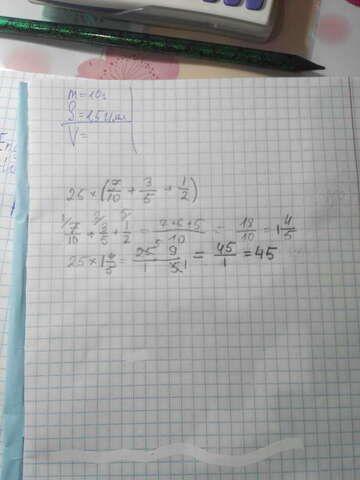 m = 10г
V =
25 × (7/10 + 3/5 + 1/2)
7/10 + 3/5 + 1/2 = 7+6+5/10 = 18/10 = 1 4/5
25 × 1 4/5 = 25 9/1 5 = 45/1 = 45